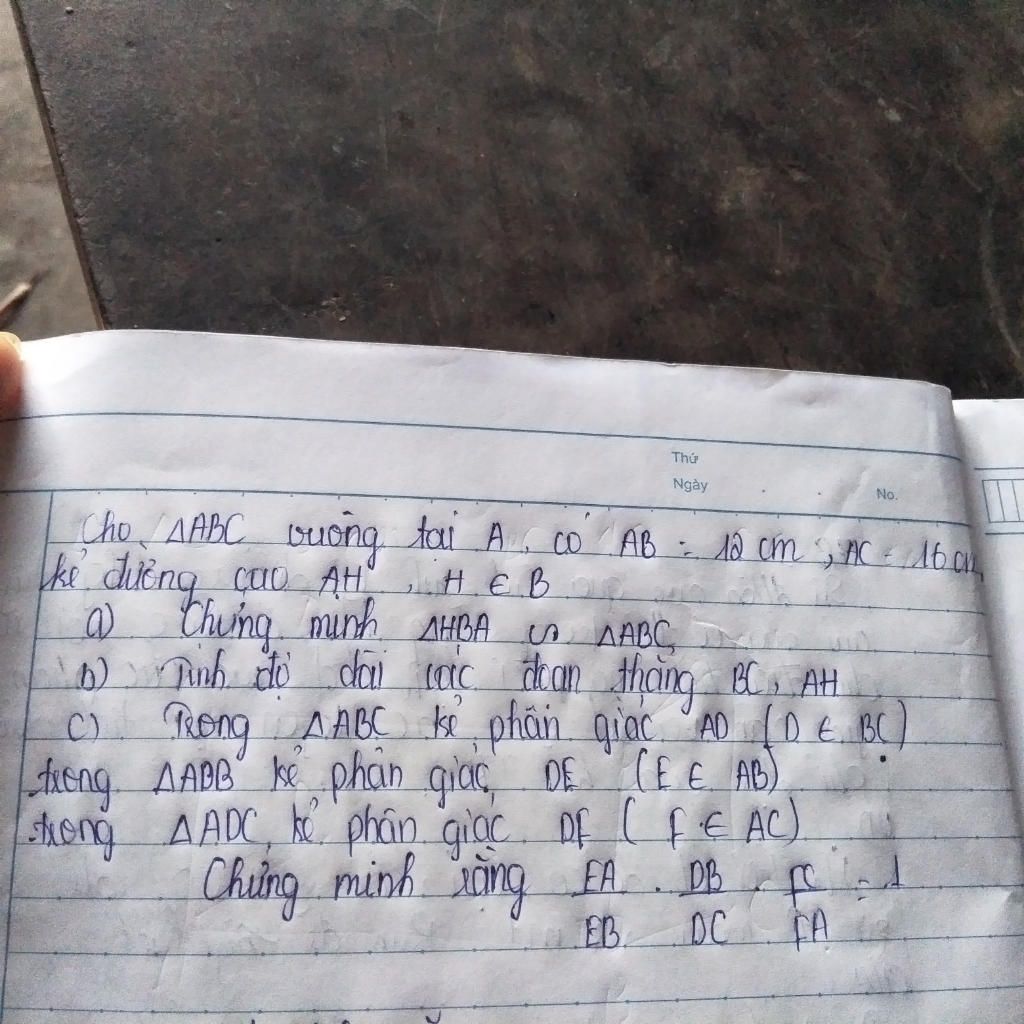 Thứ
Ngày
No.
Cho ΔABC vuông tại A, có AB = 12 cm, AC = 16 cm,
kẻ đường cao AH, H ∈ B
a) Chứng minh ΔHBA ∽ ΔABC
b) Tính độ dài các đoạn thẳng BC, AH
c) Trong ΔABC kẻ phân giác AD (D ∈ BC)
trong ΔADB kẻ phân giác DE (E ∈ AB)
trong ΔADC, kẻ phân giác DF (F ∈ AC)
Chứng minh rằng EA/EB . DB/DC . FC/FA = 1